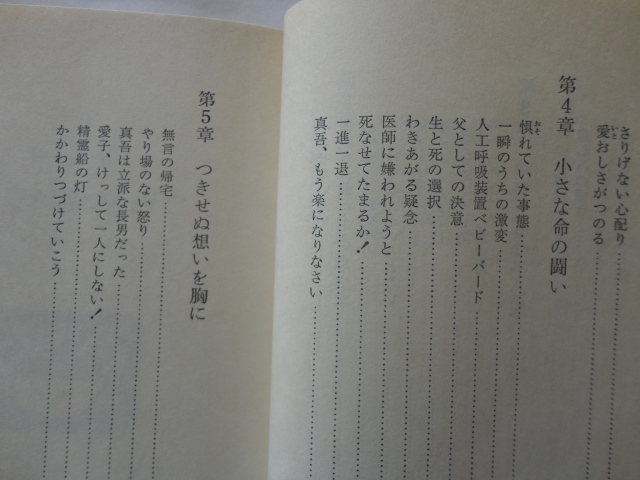 さりげない心配り
愛おしさがつのる
第4章 小さな命の闘い
惧れていた事態
一瞬のうちの激変
人工呼吸装置ベビーバード
父としての決意
生と死の選択
わきあがる疑念
医師に嫌われようと
死なせてたまるか!
一進一退
真吾、もう楽になりなさい
第5章 つきせぬ想いを胸に
無言の帰宅
やり場のない怒り
真吾は立派な長男だった
愛子、けっして一人にしない!
精霊船の灯
かかわりつづけていこう